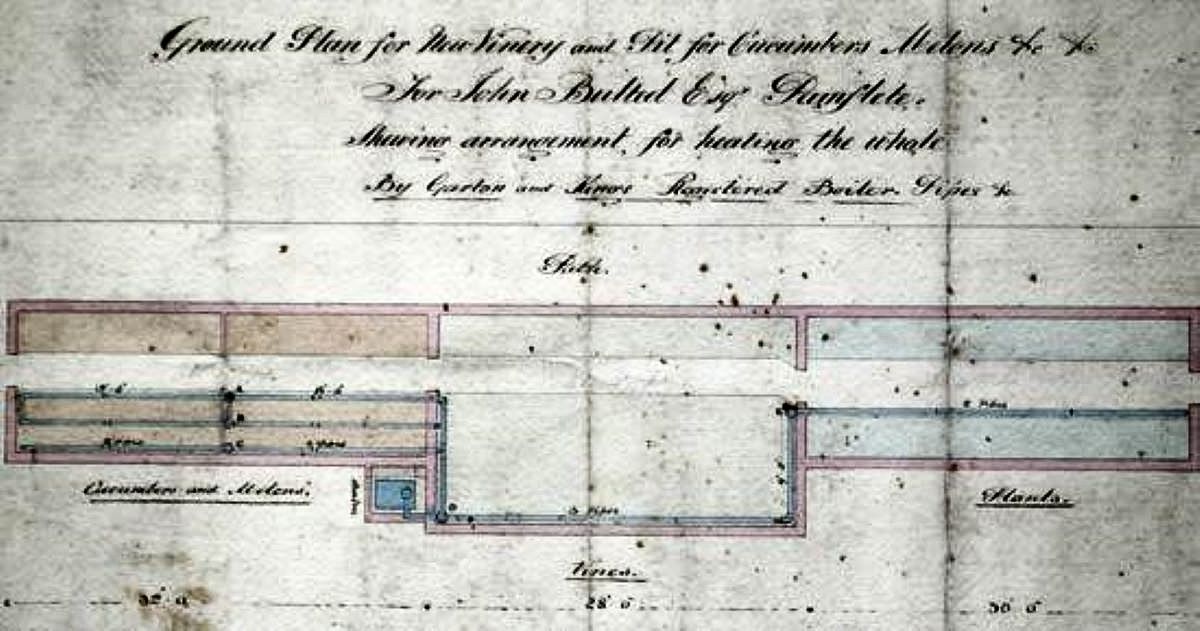 Ground Plan for New Vinery and Pit for Cucumbers Melons &c &c
For John Bulteel Esqr
Shewing arrangement for heating the whole
By Garton and King's Registered Boiler Pipes &c
Path.
2 Pipes
Cucumbers and Melons.
3 Pipes
Plants.
Vines.
28 6